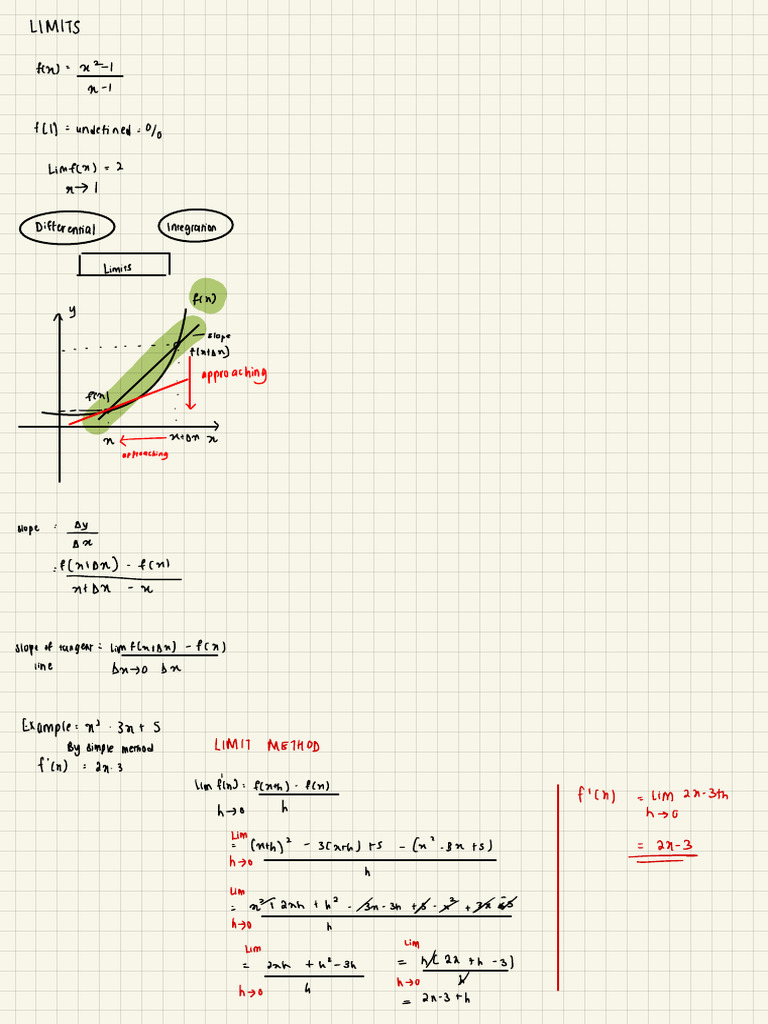 LIMITS
f(x) = x²-1
x-1
f(1) = undefined = 0/0
Lim f(x) = 2
x→1
Differential
Integration
Limits
y
f(x)
slope
f(x+Δx)
approaching
f(x)
x
x+Δx
x
approaching
slope = Δy
Δx
= f(x+Δx) - f(x)
x+Δx - x
slope of tangent = lim f(x+Δx) - f(x)
line Δx→0 Δx
Example = x² - 3x + 5
By simple method
f'(x) = 2x-3
LIMIT METHOD
Lim f'(x) = f(x+h) - f(x)
h→0 h
Lim
= (x+h)² - 3(x+h) + 5 - (x² - 3x + 5)
h→0 h
Lim
= x² + 2xh + h² - 3x - 3h + 5 - x² + 3x - 5
h→0 h
Lim
= 2xh + h² - 3h
h→0 h
Lim
= h(2x + h - 3)
h→0 h
= 2x-3+h
f'(x) = Lim 2x-3+h
h→0
= 2x-3